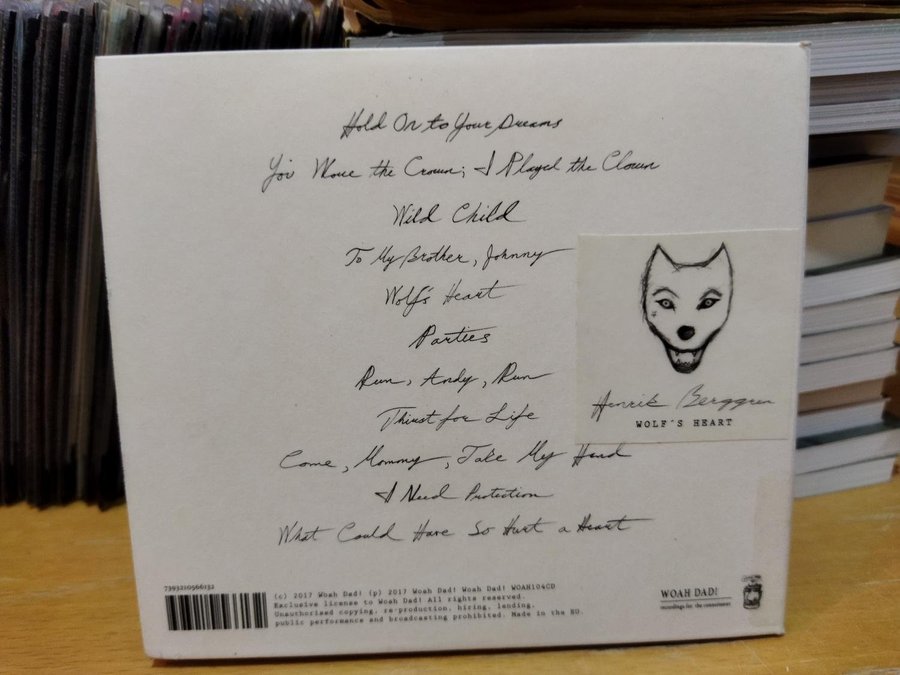 Hold On to Your Dreams
You Wore the Crown; I Played the Clown
Wild Child
To My Brother, Johnny
Wolf's Heart
Parties
Run, Andy, Run
Thirst for Life
Come, Mommy, Take My Hand
I Need Protection
What Could Have So Hurt a Heart
Henrik Berggren
WOLF'S HEART
7393210566132
(c) 2017 Woah Dad! (p) 2017 Woah Dad! Woah Dad! WOAH104CD
Exclusive license to Woah Dad! All rights reserved.
Unauthorised copying, re-production, hiring, lending,
public performance and broadcasting prohibited. Made in the EU.
WOAH DAD!
recordings for the connoisseur